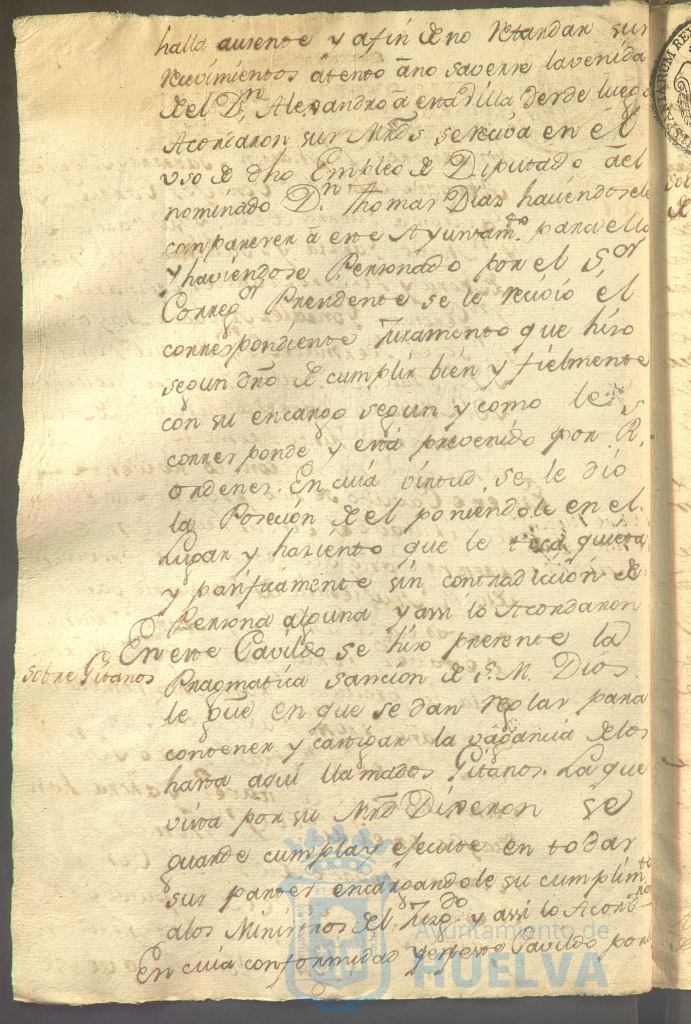 halla ausente y afin de no Retardar sus
recivimientos atento âno saverse la venida
del Dn Alexandro â esta Villa desde luego
Acordaron sus Mrds se reciva en el
vso de dho Empleo de Diputado âel
nominado Dn Thomas Dias haciendosele
comparecer â este Ayuntamto para ello
y haviendose Personado por el Sor
Corregor Presidente se le recivió el
correspondiente Juramento que hiso
segun dro de cumplir bien y fielmente
con su encargo segun y como le
corresponde y está prevenido por Rs
ordenes. En cuia virtud, se le dio
la Posecion del poniendole en el
Lugar y haciento que le toca quieta
y pacificamente sin contradiccion de
Persona alguna y assi lo Acordaron
En este Cavildo se hiso presente la
Sobre Gitanos
Pragmatica sancion de S. M. Dios
le gue en que se dan reglas para
contener y castigar la vagancia de los
hasta aqui llamados Gitanos. La que
vista por su Mrd Dixeron se
guarde cumpla y efecute en todas
sus partes encargandole su cumplimto
alos Ministros del Juzgdo y assi lo Acordron
En cuia conformidad y este Cavildo por
Ayuntamiento de
HUELVA